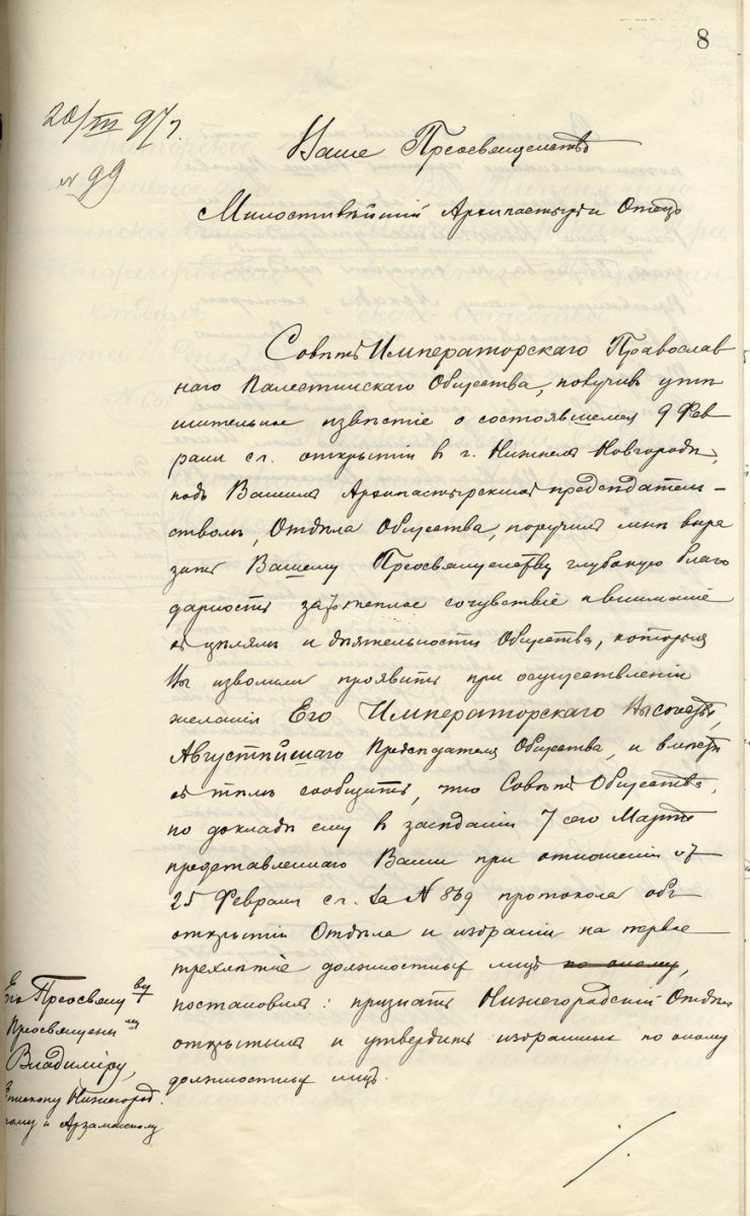 8
20/III 97 г.
№ 99
Ваше Преосвященство
Милостивѣйшій Архипастырь и Отецъ
Совѣтъ Императорскаго Православ
наго Палестинскаго Общества, получивъ утѣ
шительное извѣстіе о состоявшемся 9 Фев
раля с.г. открытіи въ г. Нижнемъ Новгородѣ,
подъ Вашимъ Архипастырскимъ предсѣдатель-
ствомъ, Отдѣла Общества, поручилъ мнѣ выра
зить Вашему Преосвященству глубокую благо
дарность за теплое сочувствіе и вниманіе
къ цѣлямъ и дѣятельности Общества, которыя
Вы изволили проявить при осуществленіи
желанія Его Императорскаго Высочества,
Августѣйшаго Предсѣдателя Общества, и вмѣстѣ
съ тѣмъ сообщить, что Совѣтъ Общества,
по докладѣ ему въ засѣданіи 7 сего Марта
представленнаго Вами при отношеніи отъ
25 Февраля с.г. за № 869 протокола объ
открытіи Отдѣла и избраніи на первое
трехлѣтіе должностныхъ лицъ по оному,
постановилъ: признать Нижегородскій Отдѣлъ
открытымъ и утвердить избранныхъ по оному
должностныхъ лицъ.
Его Преосвященству
Преосвященнѣйшему
Владиміру,
Епископу Нижегород
скому и Арзамасскому